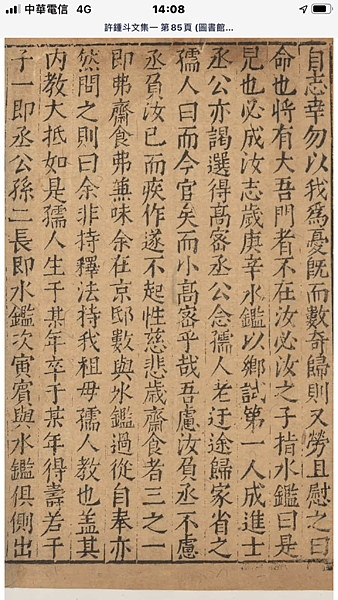 中華電信 4G 14:08
許鍾斗文集一 第85頁 (圖書館...
自志幸勿以我為憂既而數奇歸則又勞且慰之曰
命也將有大吾門者不在汝必汝之子指水鑑曰是
見也必成汝志歲庚辛水鑑以鄉試第一人成進士
丞公亦謁選得高密丞公念孺人老迂途歸家省之
孺人曰而今官矣而小高密乎哉吾慮汝負丞不慮
丞負汝已而疾作遂不起性慈悲歲齋食者三之一
即弗齋食弗兼味余在京邸數與水鑑過從自奉亦
然問之則曰余非持釋法待我祖母孺人教也盖其
內教大抵如是孺人生于某年卒于某年得壽若干
子一即丞公孫二長即水鑑次寅賓與水鑑俱側出